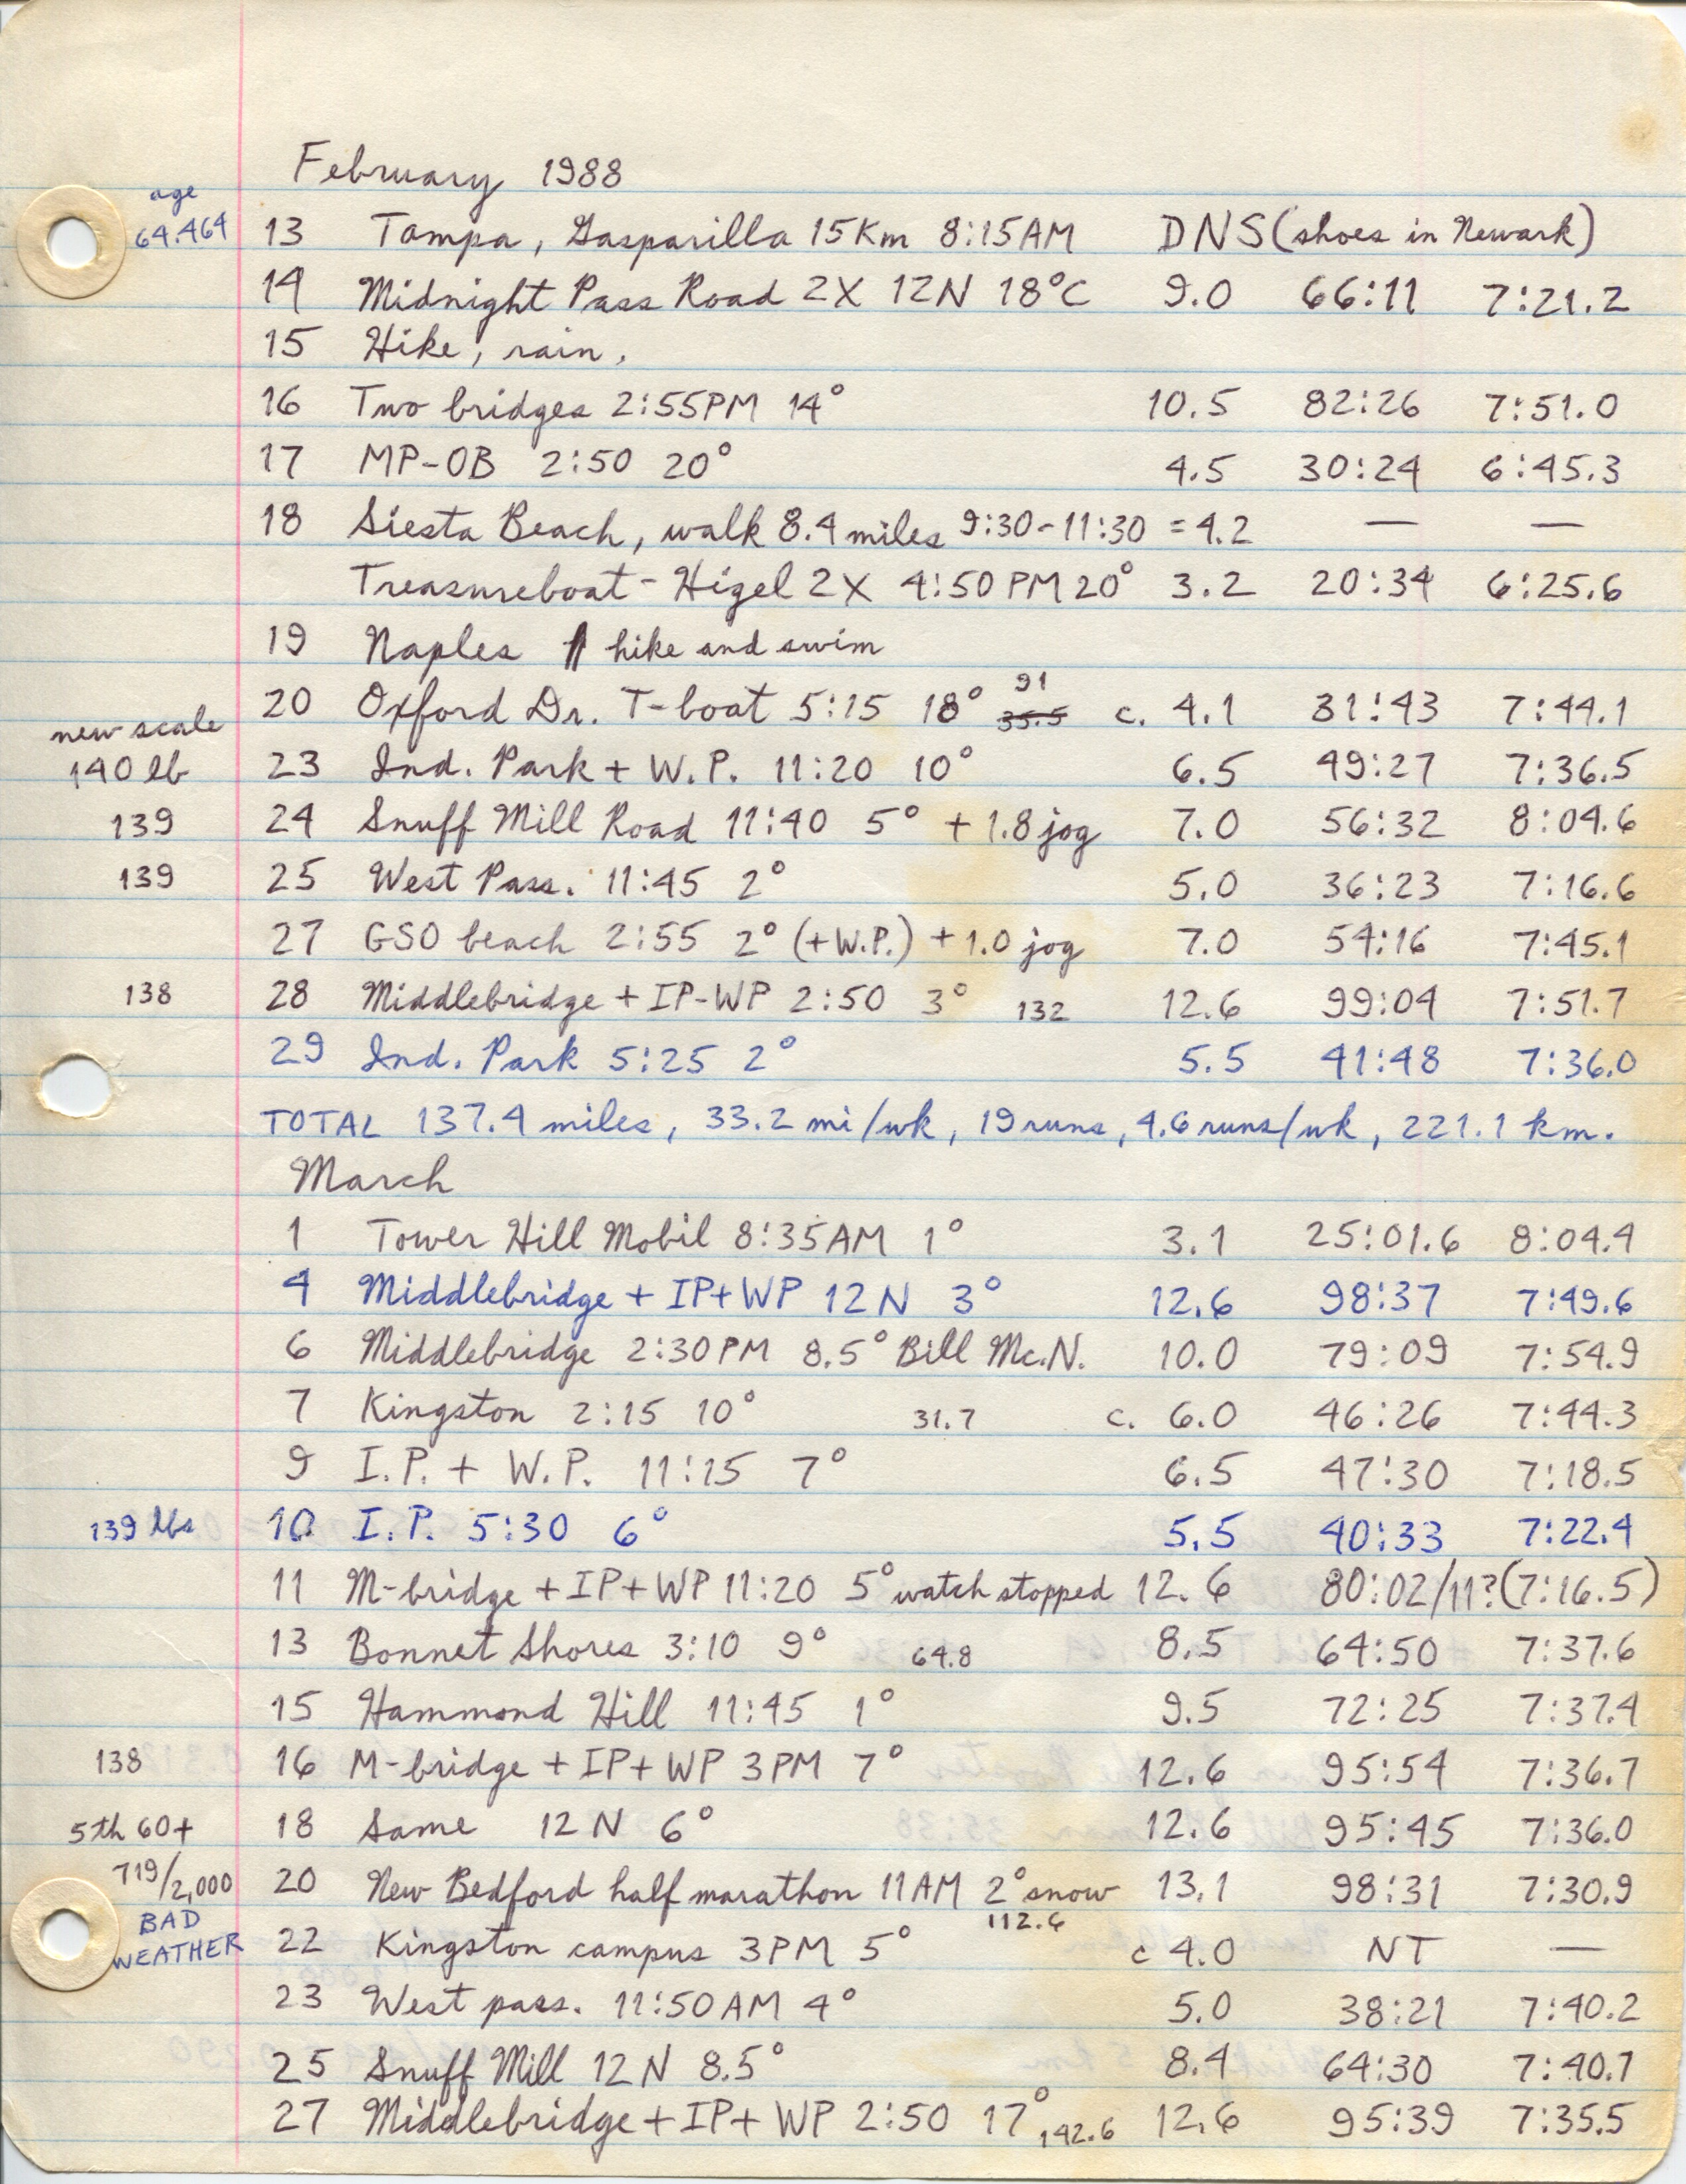 February 1988
age
64.464 13 Tampa, Gasparilla 15Km 8:15AM DNS (shoes in Newark)
14 Midnight Pass Road 2X 12N 18°C 9.0 66:11 7:21.2
15 Hike, rain.
16 Two bridges 2:55PM 14° 10.5 82:26 7:51.0
17 MP-OB 2:50 20° 4.5 30:24 6:45.3
18 Siesta Beach, walk 8.4 miles 9:30-11:30 = 4.2 — —
Treasureboat-Higel 2X 4:50PM 20° 3.2 20:34 6:25.6
19 Naples hike and swim
20 Oxford Dr. T-boat 5:15 18° 35.5 91 c. 4.1 31:43 7:44.1
new scale
140 lb 23 Ind. Park + W.P. 11:20 10° 6.5 49:27 7:36.5
139 24 Snuff Mill Road 11:40 5° + 1.8 jog 7.0 56:32 8:04.6
139 25 West Pass. 11:45 2° 5.0 36:23 7:16.6
27 GSO beach 2:55 2° (+W.P.) + 1.0 jog 7.0 54:16 7:45.1
138 28 Middlebridge + IP-WP 2:50 3° 132 12.6 99:04 7:51.7
29 Ind. Park 5:25 2° 5.5 41:48 7:36.0
TOTAL 137.4 miles, 33.2 mi/wk, 19 runs, 4.6 runs/wk, 221.1 km.
March
1 Tower Hill Mobil 8:35AM 1° 3.1 25:01.6 8:04.4
4 Middlebridge + IP+WP 12N 3° 12.6 98:37 7:49.6
6 Middlebridge 2:30PM 8.5° Bill Mc.N. 10.0 79:09 7:54.9
7 Kingston 2:15 10° 31.7 c. 6.0 46:26 7:44.3
9 I.P. + W.P. 11:15 7° 6.5 47:30 7:18.5
139 lbs 10 I.P. 5:30 6° 5.5 40:33 7:22.4
11 M-bridge + IP+WP 11:20 5° watch stopped 12.6 80:02/11? (7:16.5)
13 Bonnet Shores 3:10 9° 64.8 8.5 64:50 7:37.6
15 Hammond Hill 11:45 1° 9.5 72:25 7:37.4
138 16 M-bridge + IP+WP 3PM 7° 12.6 95:54 7:36.7
5th 60+ 18 Same 12N 6° 12.6 95:45 7:36.0
719/2,000 20 New Bedford half marathon 11AM 2° snow 13.1 98:31 7:30.9
112.6
BAD
WEATHER 22 Kingston campus 3PM 5° c 4.0 NT —
23 West pass. 11:50AM 4° 5.0 38:21 7:40.2
25 Snuff Mill 12N 8.5° 8.4 64:30 7:40.7
27 Middlebridge + IP+ WP 2:50 17° 142.6 12.6 95:39 7:35.5